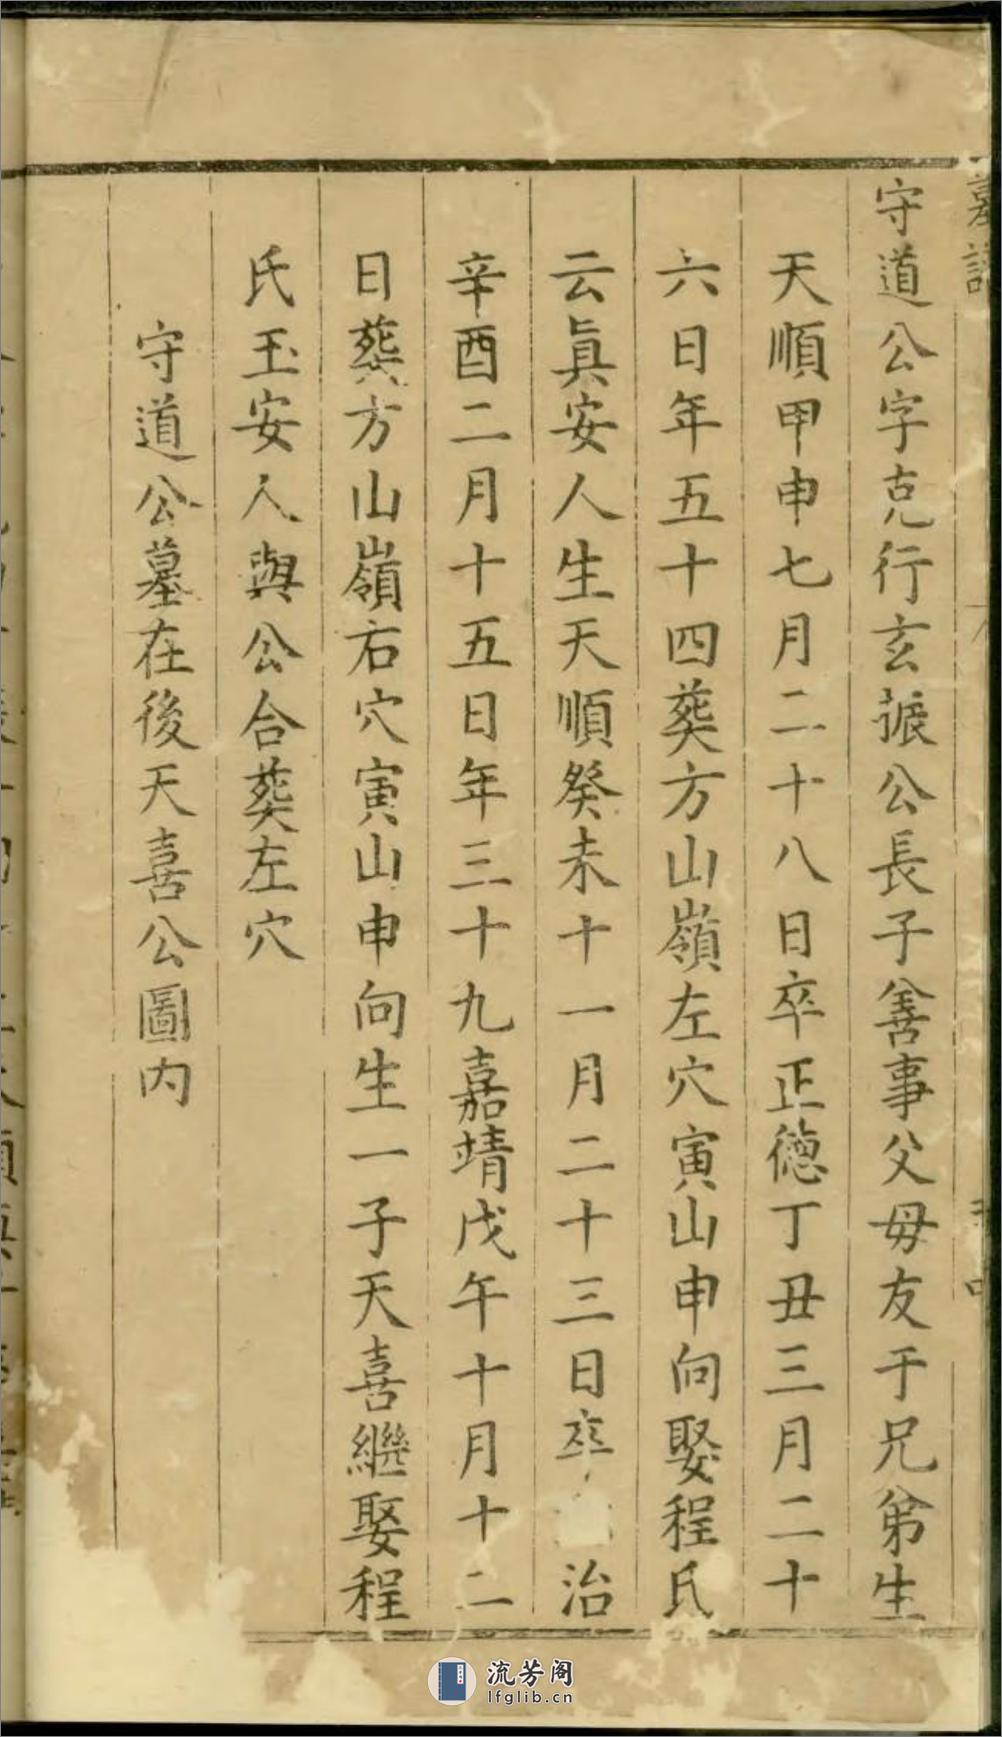 墓
守道公字克行玄公長子善事父母友于兄弟生
天順甲申七月二十八日卒正德丁丑三月二十
六日年五十四葬方山嶺左穴寅山申向娶程氏
云眞安人生天順癸未十一月二十三日卒治
辛酉二月十五日年三十九嘉靖戊午十月十二
日葬方山嶺右穴寅山申向生一子天喜繼娶程
氏玉安人與公合葬左穴
守道公墓在後天喜公圖内
流芳阁
lfglib.cn